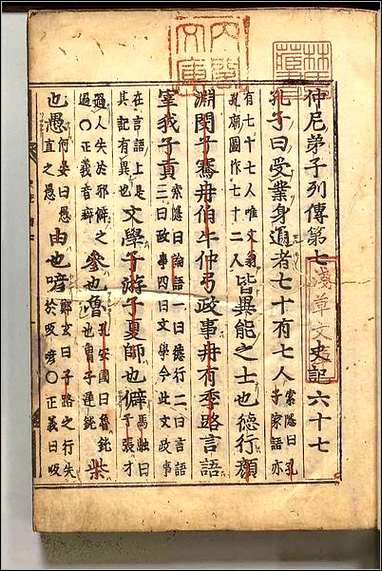 仲尼弟子列傳第七 史記六十七
孔子曰受業身通者七十有七人 索隱曰孔子家語亦
有七十七人唯文翁孔廟圖作七十二人 皆異能之士也德行顏
淵閔子騫冉伯牛仲弓政事冉有季路言語
宰我子貢 索隱曰論語一曰德行二曰言語三曰政事四曰文學今此文政事
在言語上是其記有異也 文學子游子夏師也僻 馬融曰子張才
過人失於邪僻之過○正義音癖 參也魯 孔安國曰魯鈍也曾子遲鈍 柴
也愚 何晏曰愚直之愚 由也喭 鄭玄曰子路之行失於吸喭○正義曰吸
淺草文庫
林氏藏書